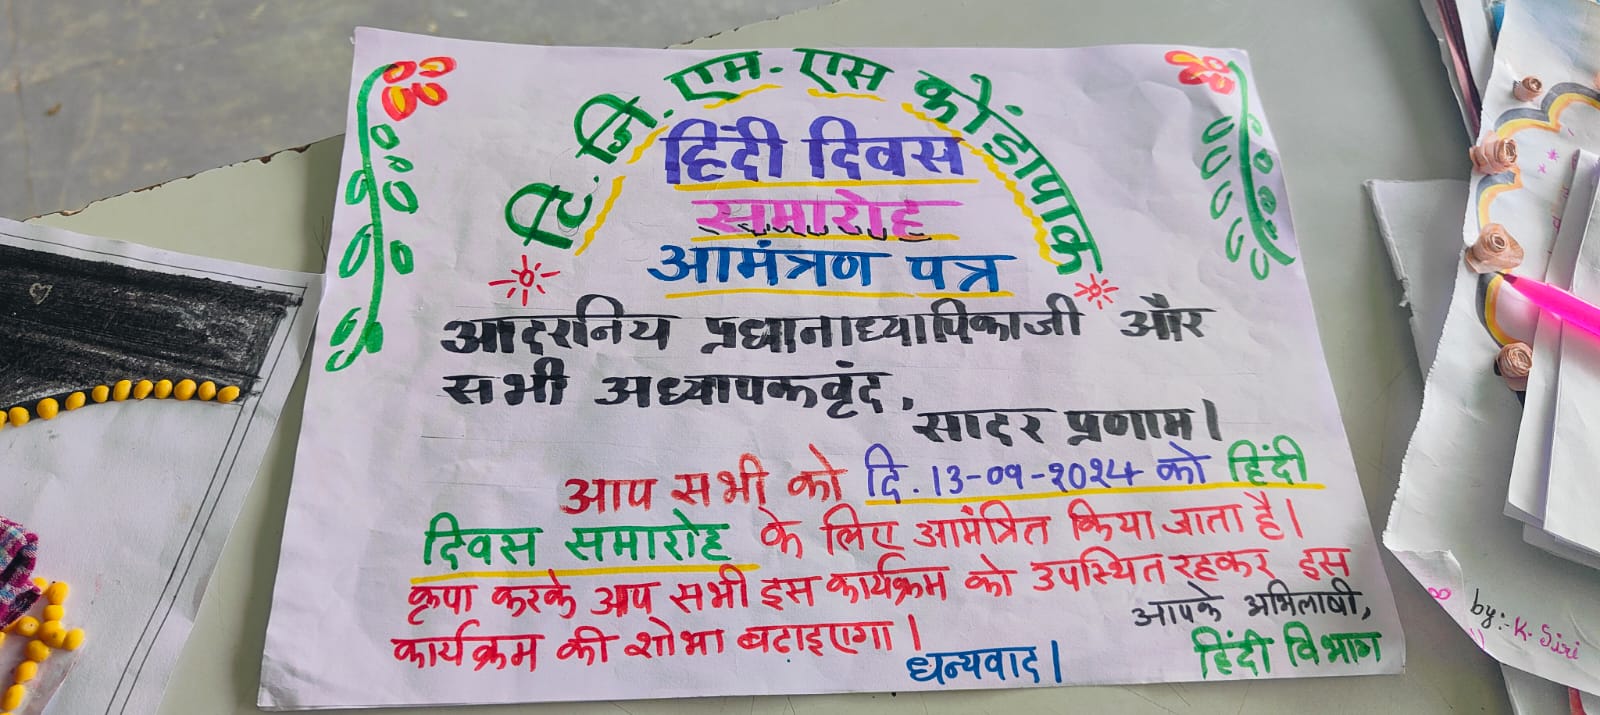 टि. जि. एम. एस कोंडापाक
हिंदी दिवस
समारोह
आमंत्रण पत्र
आदरनिय प्रधानाध्यापिकाजी और
सभी अध्यापकवृंद,
सादर प्रणाम।
आप सभी को दि. 13-09-2024 को हिंदी
दिवस समारोह के लिए आमंत्रित किया जाता है।
कृपा करके आप सभी इस कार्यक्रम को उपस्थित रहकर इस
कार्यक्रम की शोभा बढ़ाइएगा।
धन्यवाद।
आपके अभिलाषी,
हिंदी विभाग
by:- K. Siri